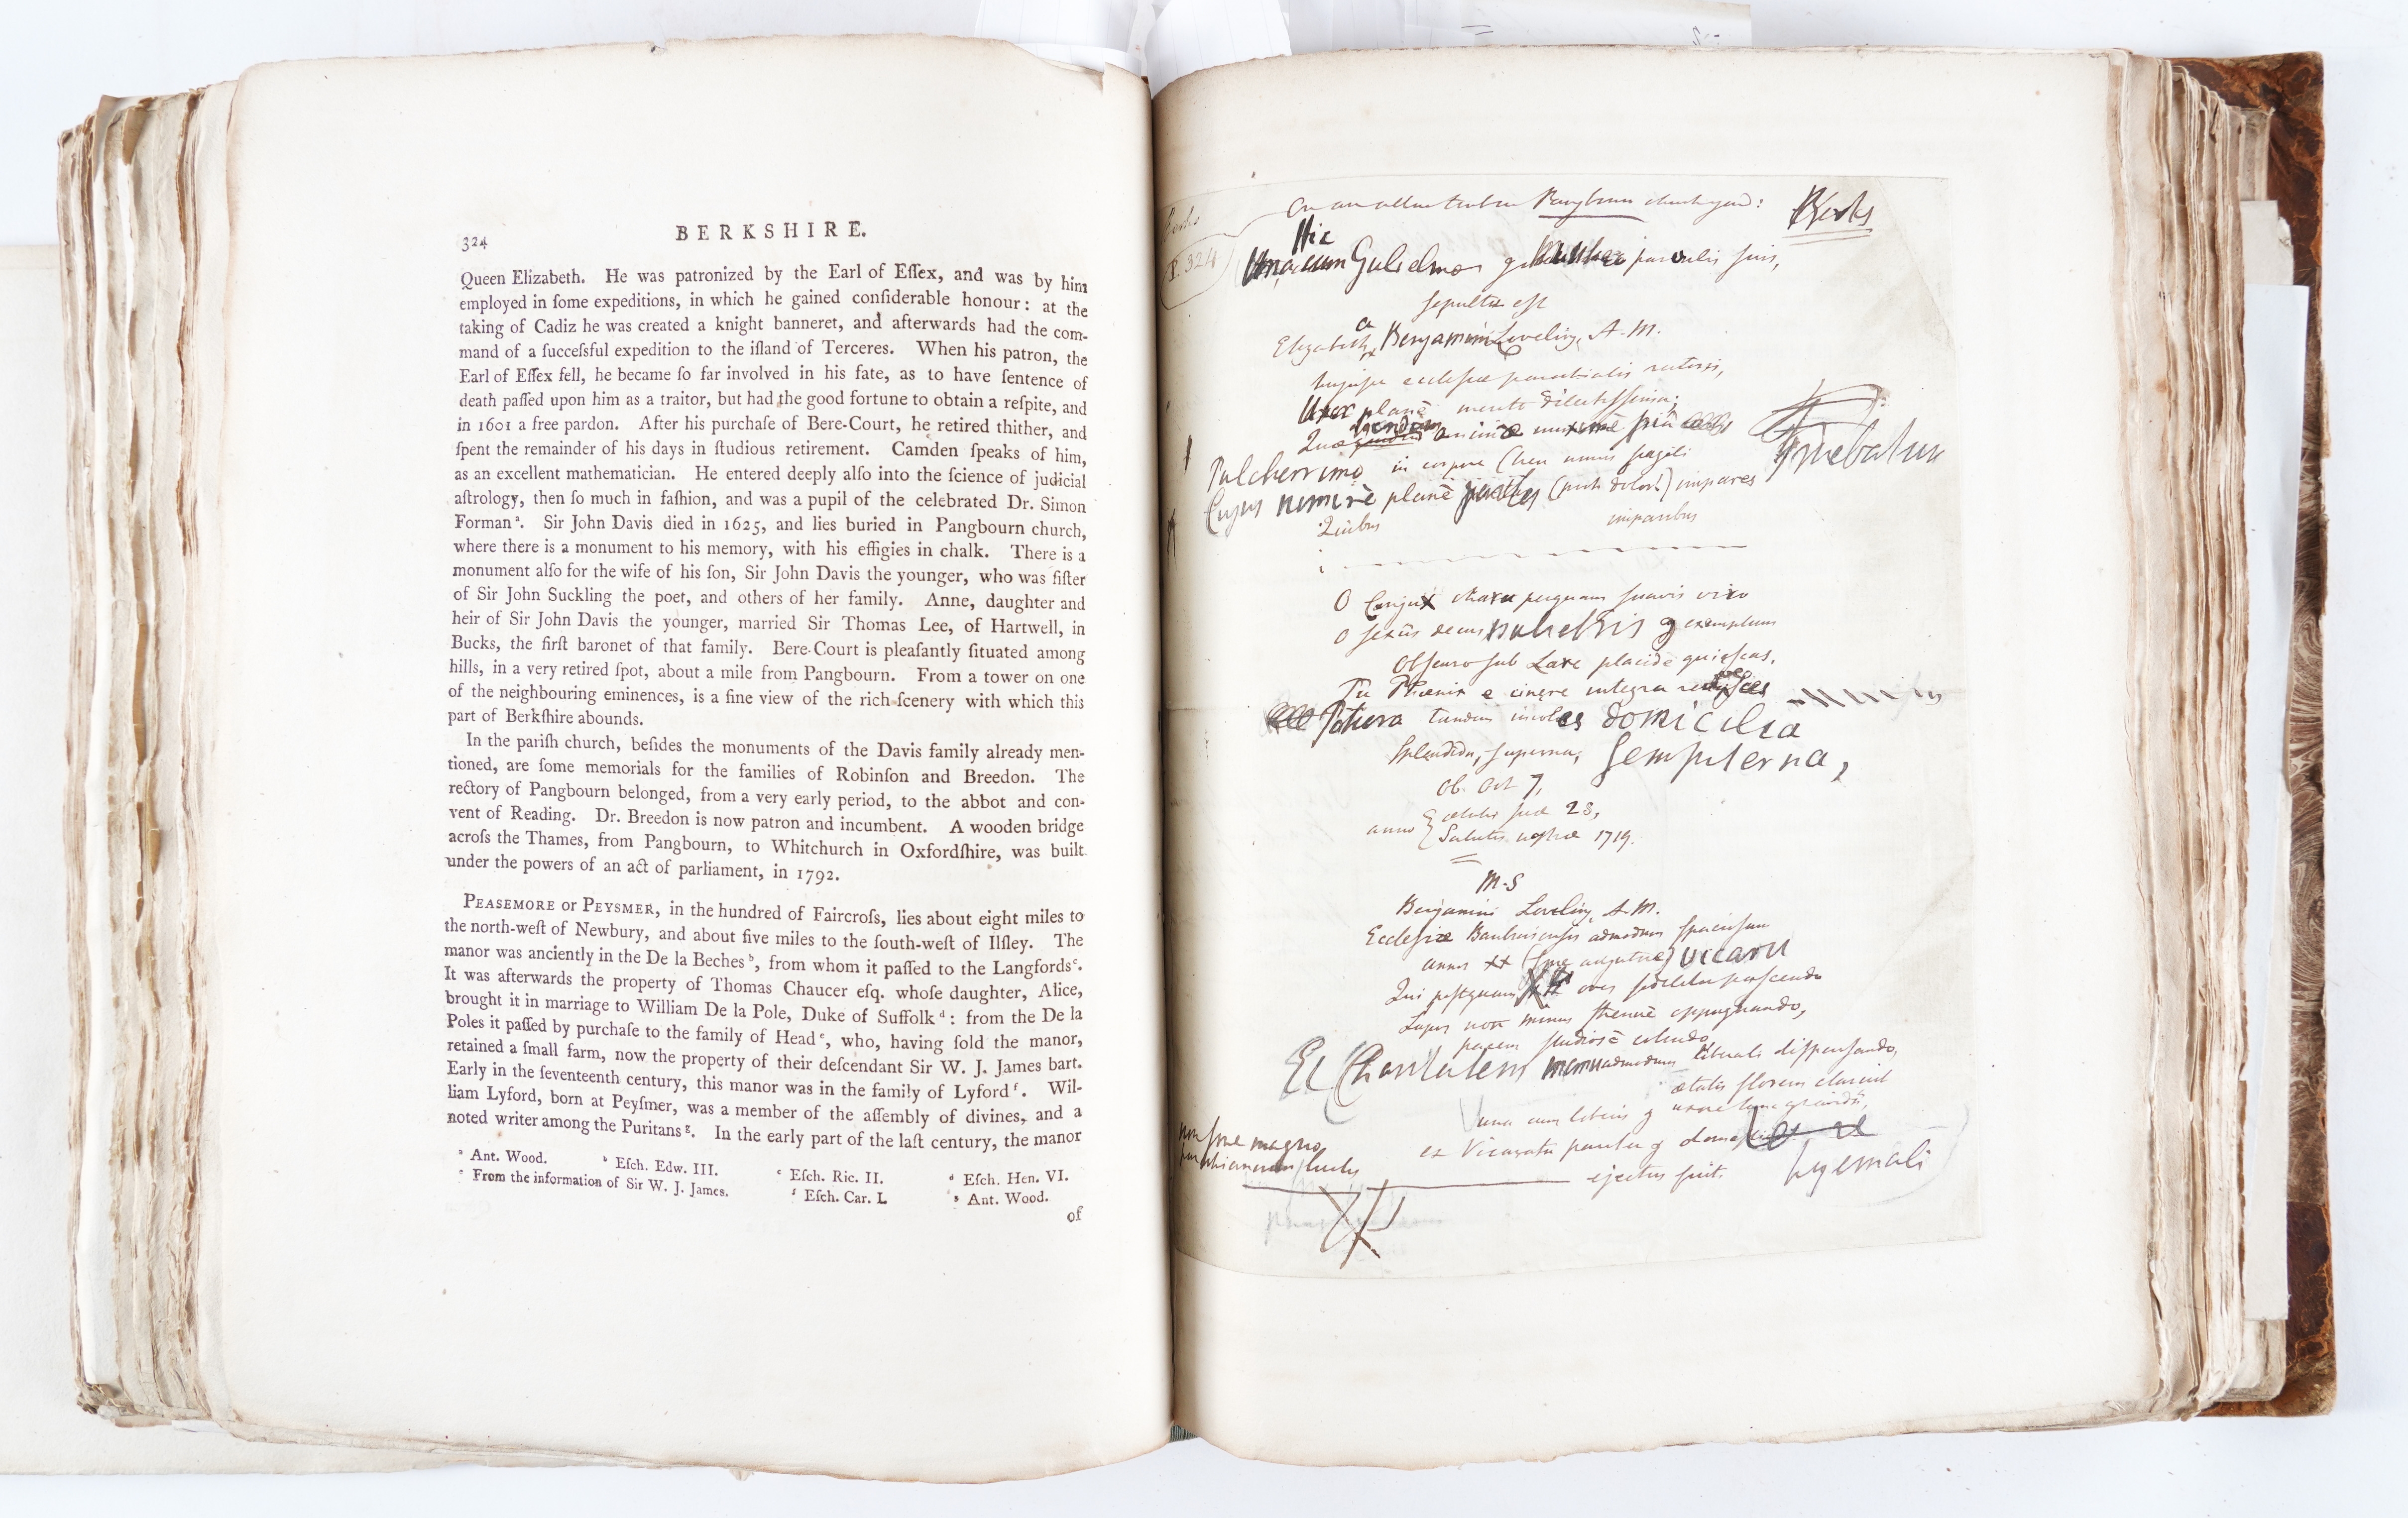 324
BERKSHIRE.
Queen Elizabeth. He was patronized by the Earl of Eſſex, and was by him
employed in ſome expeditions, in which he gained conſiderable honour: at the
taking of Cadiz he was created a knight banneret, and afterwards had the com-
mand of a ſucceſsful expedition to the iſland of Terceres. When his patron, the
Earl of Eſſex fell, he became ſo far involved in his fate, as to have ſentence of
death paſſed upon him as a traitor, but had the good fortune to obtain a reſpite, and
in 1601 a free pardon. After his purchaſe of Bere-Court, he retired thither, and
ſpent the remainder of his days in ſtudious retirement. Camden ſpeaks of him,
as an excellent mathematician. He entered deeply alſo into the ſcience of judicial
aſtrology, then ſo much in faſhion, and was a pupil of the celebrated Dr. Simon
Forman a. Sir John Davis died in 1625, and lies buried in Pangbourn church,
where there is a monument to his memory, with his effigies in chalk. There is a
monument alſo for the wife of his ſon, Sir John Davis the younger, who was ſiſter
of Sir John Suckling the poet, and others of her family. Anne, daughter and
heir of Sir John Davis the younger, married Sir Thomas Lee, of Hartwell, in
Bucks, the firſt baronet of that family. Bere-Court is pleaſantly ſituated among
hills, in a very retired ſpot, about a mile from Pangbourn. From a tower on one
of the neighbouring eminences, is a fine view of the rich ſcenery with which this
part of Berkſhire abounds.
In the pariſh church, beſides the monuments of the Davis family already men-
tioned, are ſome memorials for the families of Robinſon and Breedon. The
rectory of Pangbourn belonged, from a very early period, to the abbot and con-
vent of Reading. Dr. Breedon is now patron and incumbent. A wooden bridge
acroſs the Thames, from Pangbourn, to Whitchurch in Oxfordſhire, was built
under the powers of an act of parliament, in 1792.
PEASEMORE or PEYSMER, in the hundred of Faircroſs, lies about eight miles to
the north-weſt of Newbury, and about five miles to the ſouth-weſt of Ilſley. The
manor was anciently in the De la Beches b, from whom it paſſed to the Langfords c.
It was afterwards the property of Thomas Chaucer eſq. whoſe daughter, Alice,
brought it in marriage to William De la Pole, Duke of Suffolk d: from the De la
Poles it paſſed by purchaſe to the family of Head e, who, having ſold the manor,
retained a ſmall farm, now the property of their deſcendant Sir W. J. James bart.
Early in the ſeventeenth century, this manor was in the family of Lyford f. Wil-
liam Lyford, born at Peyſmer, was a member of the aſſembly of divines, and a
noted writer among the Puritans g. In the early part of the laſt century, the manor
a Ant. Wood. b Eſch. Edw. III. c Eſch. Ric. II. d Eſch. Hen. VI.
e From the information of Sir W. J. James. f Eſch. Car. I. g Ant. Wood.
of
On an altar tomb in Pangbourn church yard: Berks
P. 324
Hic
Gulielmo parvulis suis,
sepulta est
Elizabetha Benjamini Loveling, A.M.
ecclesiæ parochialis rectoris,
Uxor planè merito dilectissima;
Pulcherrimo in corpore (heu nimis fragili
Cujus planè (proh dolor!) impares
Quibus imparibus
O Conjux chara perquam suavis viro
O sexûs decus muliebris exemplum
Obscuro sub Lare placidè quiescas,
Tu Phœnix e cinere integra
tandem domicilia
Splendida, superna, Sempiterna,
Ob. Oct 7,
anno ætatis suæ 28,
Salutis nostræ 1719.
M.S
Benjamini Loveling, A.M.
Ecclesiæ admodum
annos xx vicarii
Qui postquam oves fideliter pascendo
Lupos non minus strenuè oppugnando,
pacem studiosè colendo
Et Charitatem admodum liberali dispensando,
ætatis florem
una cum liberis uxore
ex Vicaratu
ejectus fuit. hyemali
non sine magno
luctu